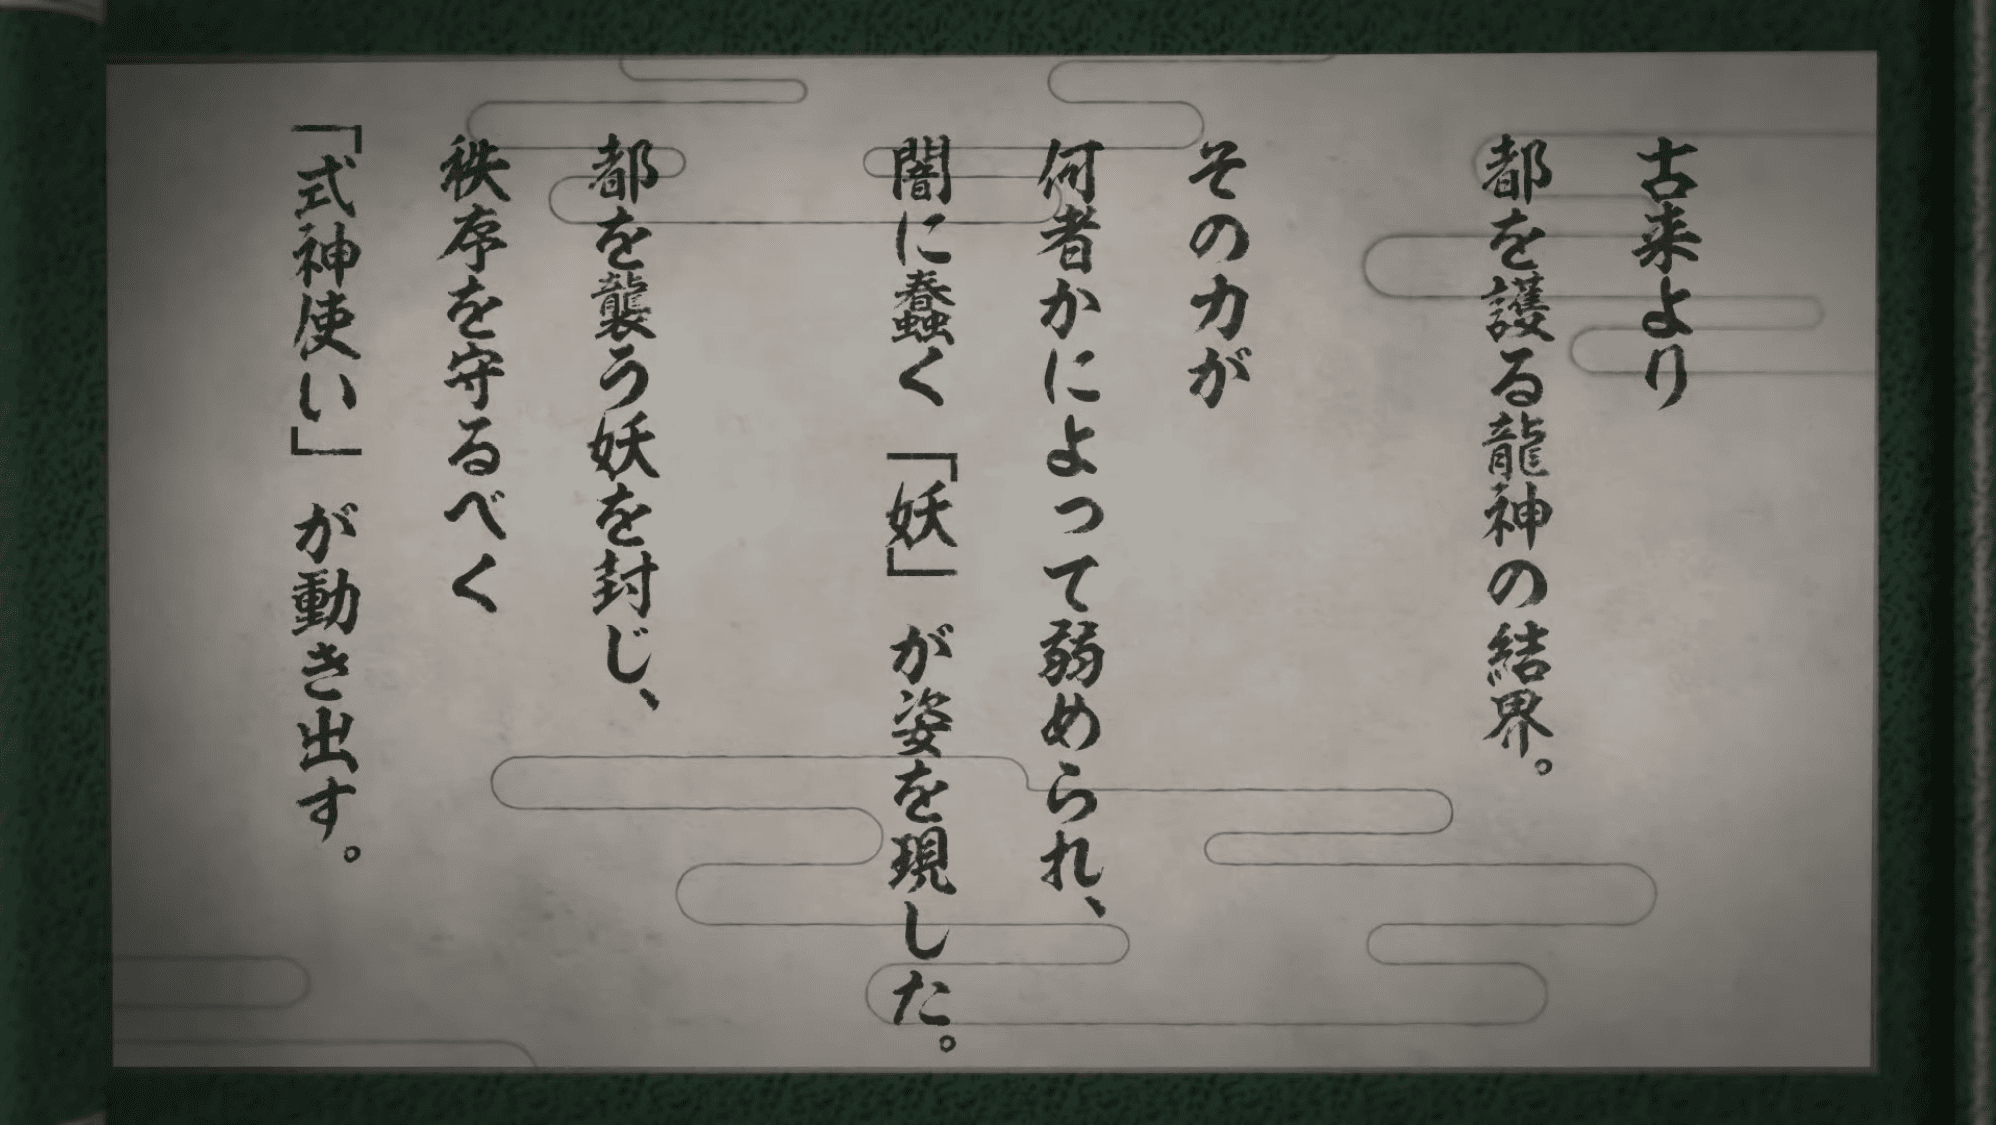 古来より
都を護る龍神の結界。
その力が
何者かによって弱められ、
闇に蠢く「妖」が姿を現した。
都を襲う妖を封じ、
秩序を守るべく
「式神使い」が動き出す。